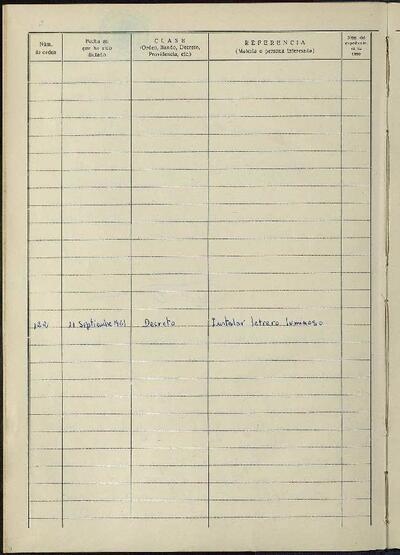 Núm. de orden
Fecha en que ha sido dictado
CLASE
(Orden, Bando, Decreto, Providencia, etc.)
REFERENCIA
(Materia o persona interesada)
Núm. del expediente
122 11 Septiembre 1961 Decreto Instalar letrero luminoso